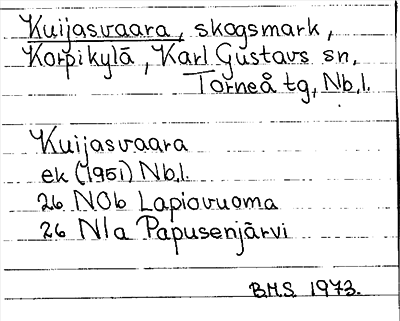 Kuijasvaara, skogsmark,
Korpikylä, Karl Gustavs sn,
Torneå tg, Nb.l.
Kuijasvaara
ek (1951) Nb.l.
26 N0b Lapiovuoma
26 N1a Papusenjärvi
B.H.S. 1973.